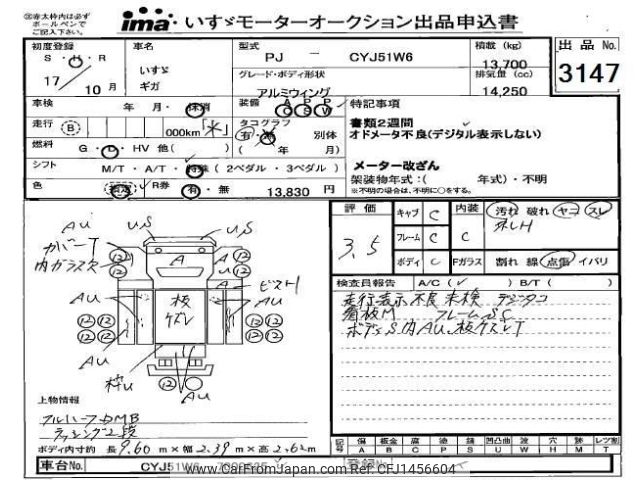 ※赤太枠内は必ず
ボールペンで
ご記入下さい。
ima・いすゞモーターオークション出品申込書
初度登録 車名 型式 積載 (kg) 出品 No.
S・H・R PJ － CYJ51W6 13,700 3147
17 10 月 いすゞ グレード・ボディ形状 排気量 (cc)
ギガ アルミウィング 14,250
車検 年 月・抹消 装備 A P P 特記事項
C S W
走行 B 000km タコグラフ 書類2週間
有・無 別体 オドメータ不良(デジタル表示しない)
燃料 G・D・HV 他( ) ( 年 月)
シフト M/T・A/T・特殊 (2ペダル・3ペダル) メーター改ざん
架装物年式:( 年式)・不明
色 R券 有・無 13,830 円 ※不明の場合は、不明に○をする。
評価 キャブ C 内装 汚れ 破れ ヤコ スレ
3.5 フレーム C C
ボディ C Fガラス 割れ 線 点傷 イバリ
検査員報告 A/C ( ✓ ) B/T ( )
走行表示不良 未検 デジタコ
看板M フレームS,C
ボディS 内AU、板ケズレT
AU US US
カバーT
内ガラス欠 A
A
U
ピストH
AU 板 AU
ケズレ
12 12 12 12
AU
枠U AU
上物情報
アルハーフDMB
ラッシング2段
ボディ内寸約 長 9.60 m×幅 2.39 m×高 2.62 m
記号 傷 板金 腐 塗 錆 凹凸曲 波 穴 跡 レツ割
A B C P S U W H M T
車台No. CYJ51W6 登録No.
www.CarFromJapan.com Ref: CFJ1456604